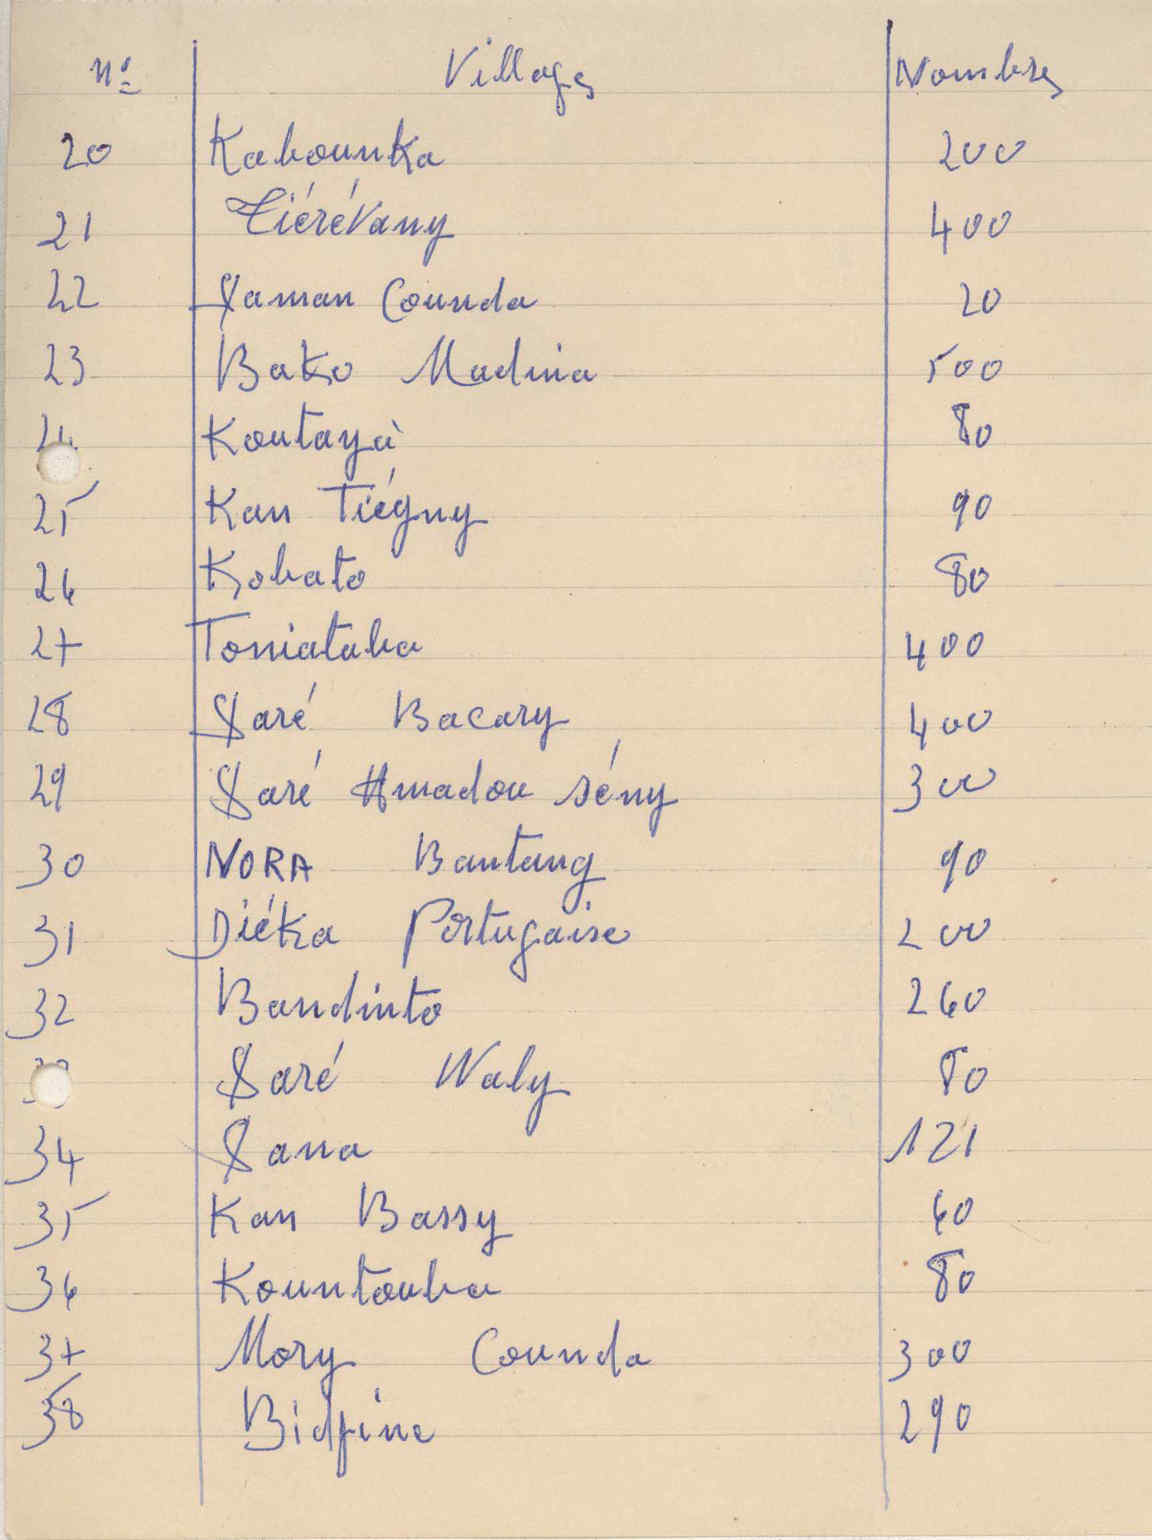 N° Villages Nombres
20 Kabounka 200
21 Tiérévany 400
22 Saman Counda 20
23 Bako Madina 500
24 Koutaya 80
25 Kan Tiégny 90
26 Kobato 80
27 Toniataba 400
28 Saré Bacary 400
29 Saré Amadou Sény 300
30 NORA Bantang 90
31 Diéka Portugaise 200
32 Bandinto 260
Saré Waly 80
34 Sana 121
35 Kan Bassy 60
36 Kountouba 80
37 Mory Counda 300
38 290